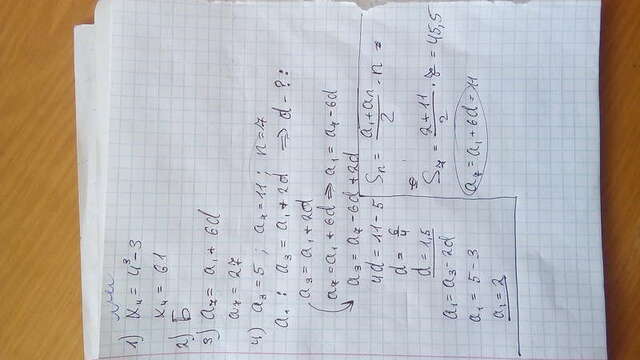 1) x₄ = 4³ - 3
x₄ = 61
2) Б
3) a₇ = a₁ + 6d
a₇ = 27
4) a₃ = 5 ; a₇ = 11 ; n = 7
a₁ : a₃ = a₁ + 2d ⇒ d - ? :
a₃ = a₁ + 2d
a₇ = a₁ + 6d ⇒ a₁ = a₇ - 6d
a₃ = a₇ - 6d + 2d
4d = 11 - 5
d = 6/4
d = 1,5
a₁ = a₃ - 2d
a₁ = 5 - 3
a₁ = 2
Sₙ = (a₁ + aₙ)/2 · n =
S₇ = (2 + 11)/2 · 7 = 45,5
a₇ = a₁ + 6d = 11